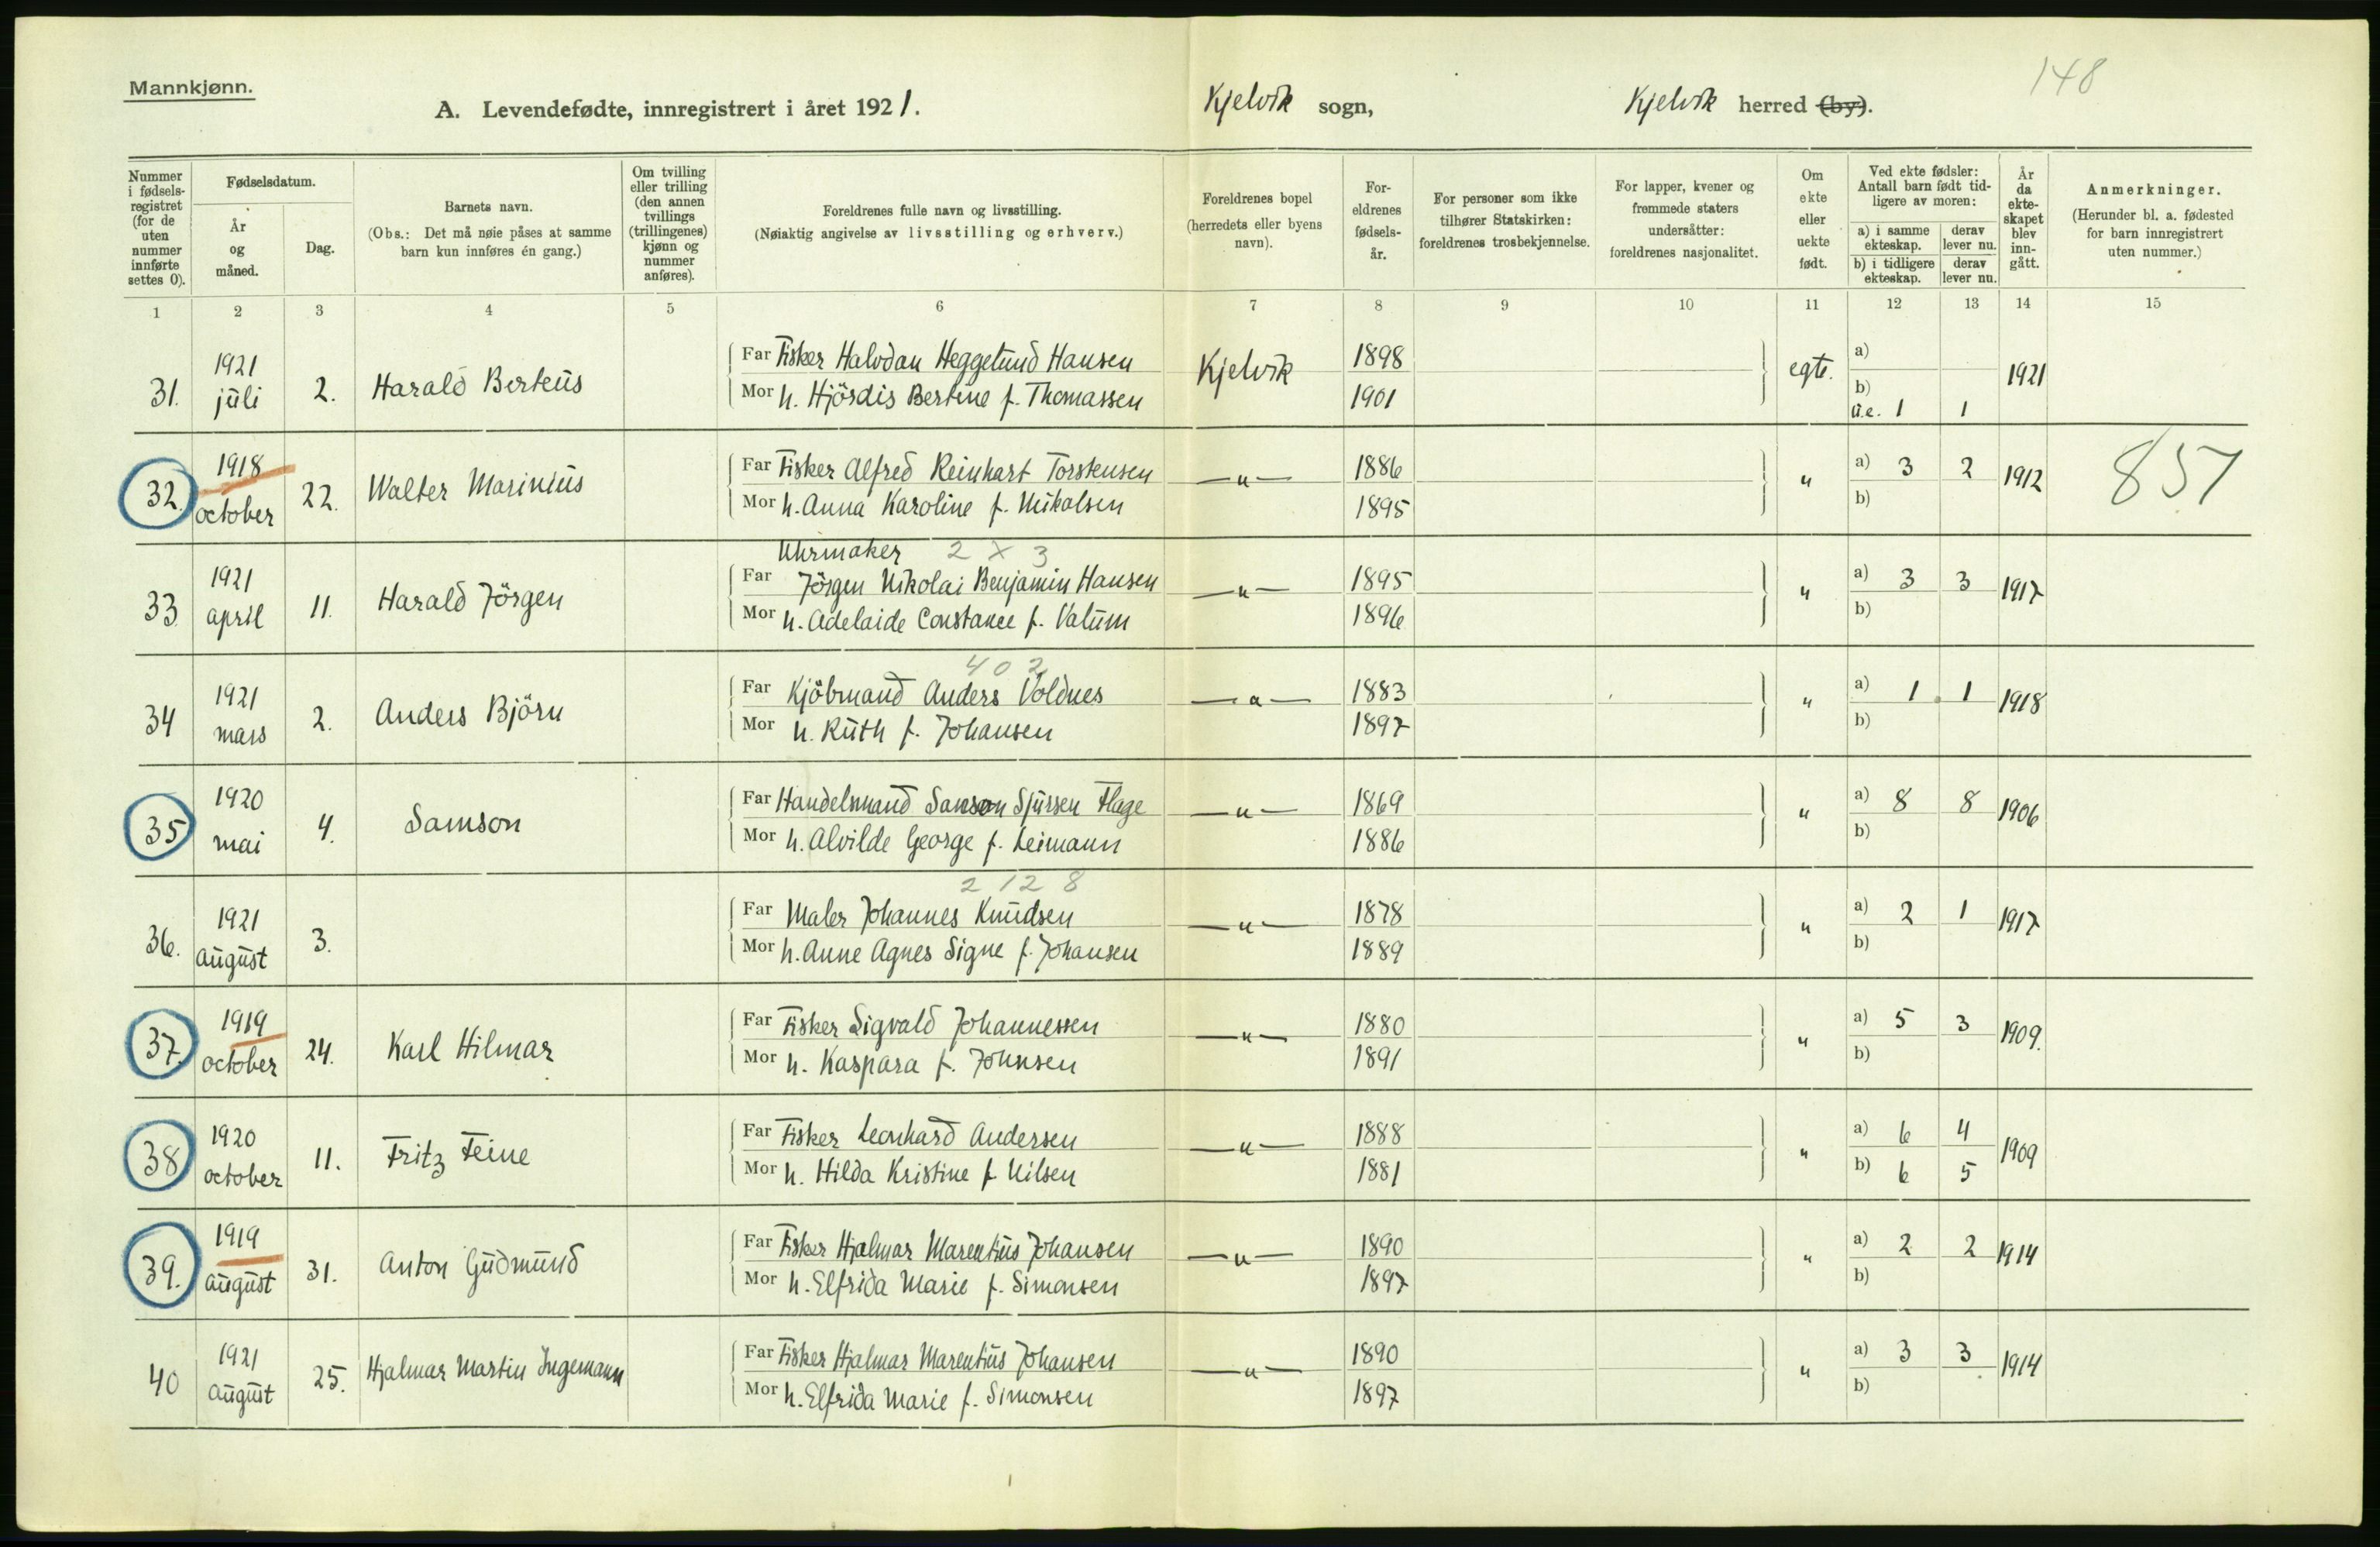 148
Mannkjønn.
A. Levendefødte, innregistrert i året 1921. Kjelvik sogn, Kjelvik herred (by).
Nummer i fødsels-registret (for de uten nummer innførte settes 0).
Fødselsdatum.
År og måned.
Dag.
Barnets navn.
(Obs.: Det må nøie påses at samme barn kun innføres én gang.)
Om tvilling eller trilling (den annen tvillings (trillingenes) kjønn og nummer anføres).
Foreldrenes fulle navn og livsstilling.
(Nøiaktig angivelse av livsstilling og erhverv.)
Foreldrenes bopel (herredets eller byens navn).
For-eldrenes fødsels-år.
For personer som ikke tilhører Statskirken: foreldrenes trosbekjennelse.
For lapper, kvener og fremmede staters undersåtter: foreldrenes nasjonalitet.
Om ekte eller uekte født.
Ved ekte fødsler: Antall barn født tid-ligere av moren:
a) i samme ekteskap.
derav lever nu.
b) i tidligere ekteskap.
derav lever nu.
År da ekte-skapet blev inn-gått.
Anmerkninger.
(Herunder bl. a. fødested for barn innregistrert uten nummer.)
1 2 3 4 5 6 7 8 9 10 11 12 13 14 15
31. 1921 juli 2. Harald Berteus
Far Fisker Halvdan Heggelund Hansen Kjelvik 1898 egte. a)
Mor h. Hjördis Bertine f. Thomassen 1901 b) 1921
u.e. 1 1
32. 1918 october 22. Walter Marinius
Far Fisker Alfred Reinhart Torstensen —„— 1886 „ a) 3 2 1912 857
Mor h. Anna Karoline f. Nikolsen 1895 b)
Uhrmaker 2 X 3
33. 1921 april 11. Harald Jörgen
Far Jörgen Nikolai Benjamin Hansen —„— 1895 „ a) 3 3 1917
Mor h. Adelaide Constance f. Valum 1896 b)
402
34 1921 mars 2. Anders Björn
Far Kjöbmand Anders Voldnes —„— 1883 „ a) 1 1 1918
Mor h. Ruth f. Johansen 1897 b)
35 1920 mai 4. Samson
Far Handelsmand Samson Sjursen Flage —„— 1869 „ a) 8 8 1906
Mor h. Alvilde George f. Leimann 1886 b)
2128
36. 1921 august 3.
Far Maler Johannes Knudsen —„— 1878 „ a) 2 1 1917
Mor h. Anne Agnes Signe f. Johansen 1889 b)
37. 1919 october 24. Karl Hilmar
Far Fisker Sigvald Johannessen —„— 1880 „ a) 5 3 1909.
Mor h. Kaspara f. Johnsen 1891 b)
38 1920 october 11. Fritz Feine
Far Fisker Leonhard Andersen —„— 1888 „ a) 6 4 1909
Mor h. Hilda Kristine f Nilsen 1881 b) 6 5
39. 1919 august 31. Anton Gudmund
Far Fisker Hjalmar Marentius Johansen —„— 1890 „ a) 2 2 1914
Mor h. Elfrida Marie f. Simonsen 1897 b)
40 1921 august 25. Hjalmar Martin Ingemann
Far Fisker Hjalmar Marentius Johansen —„— 1890 „ a) 3 3 1914
Mor h. Elfrida Marie f. Simonsen 1897 b)